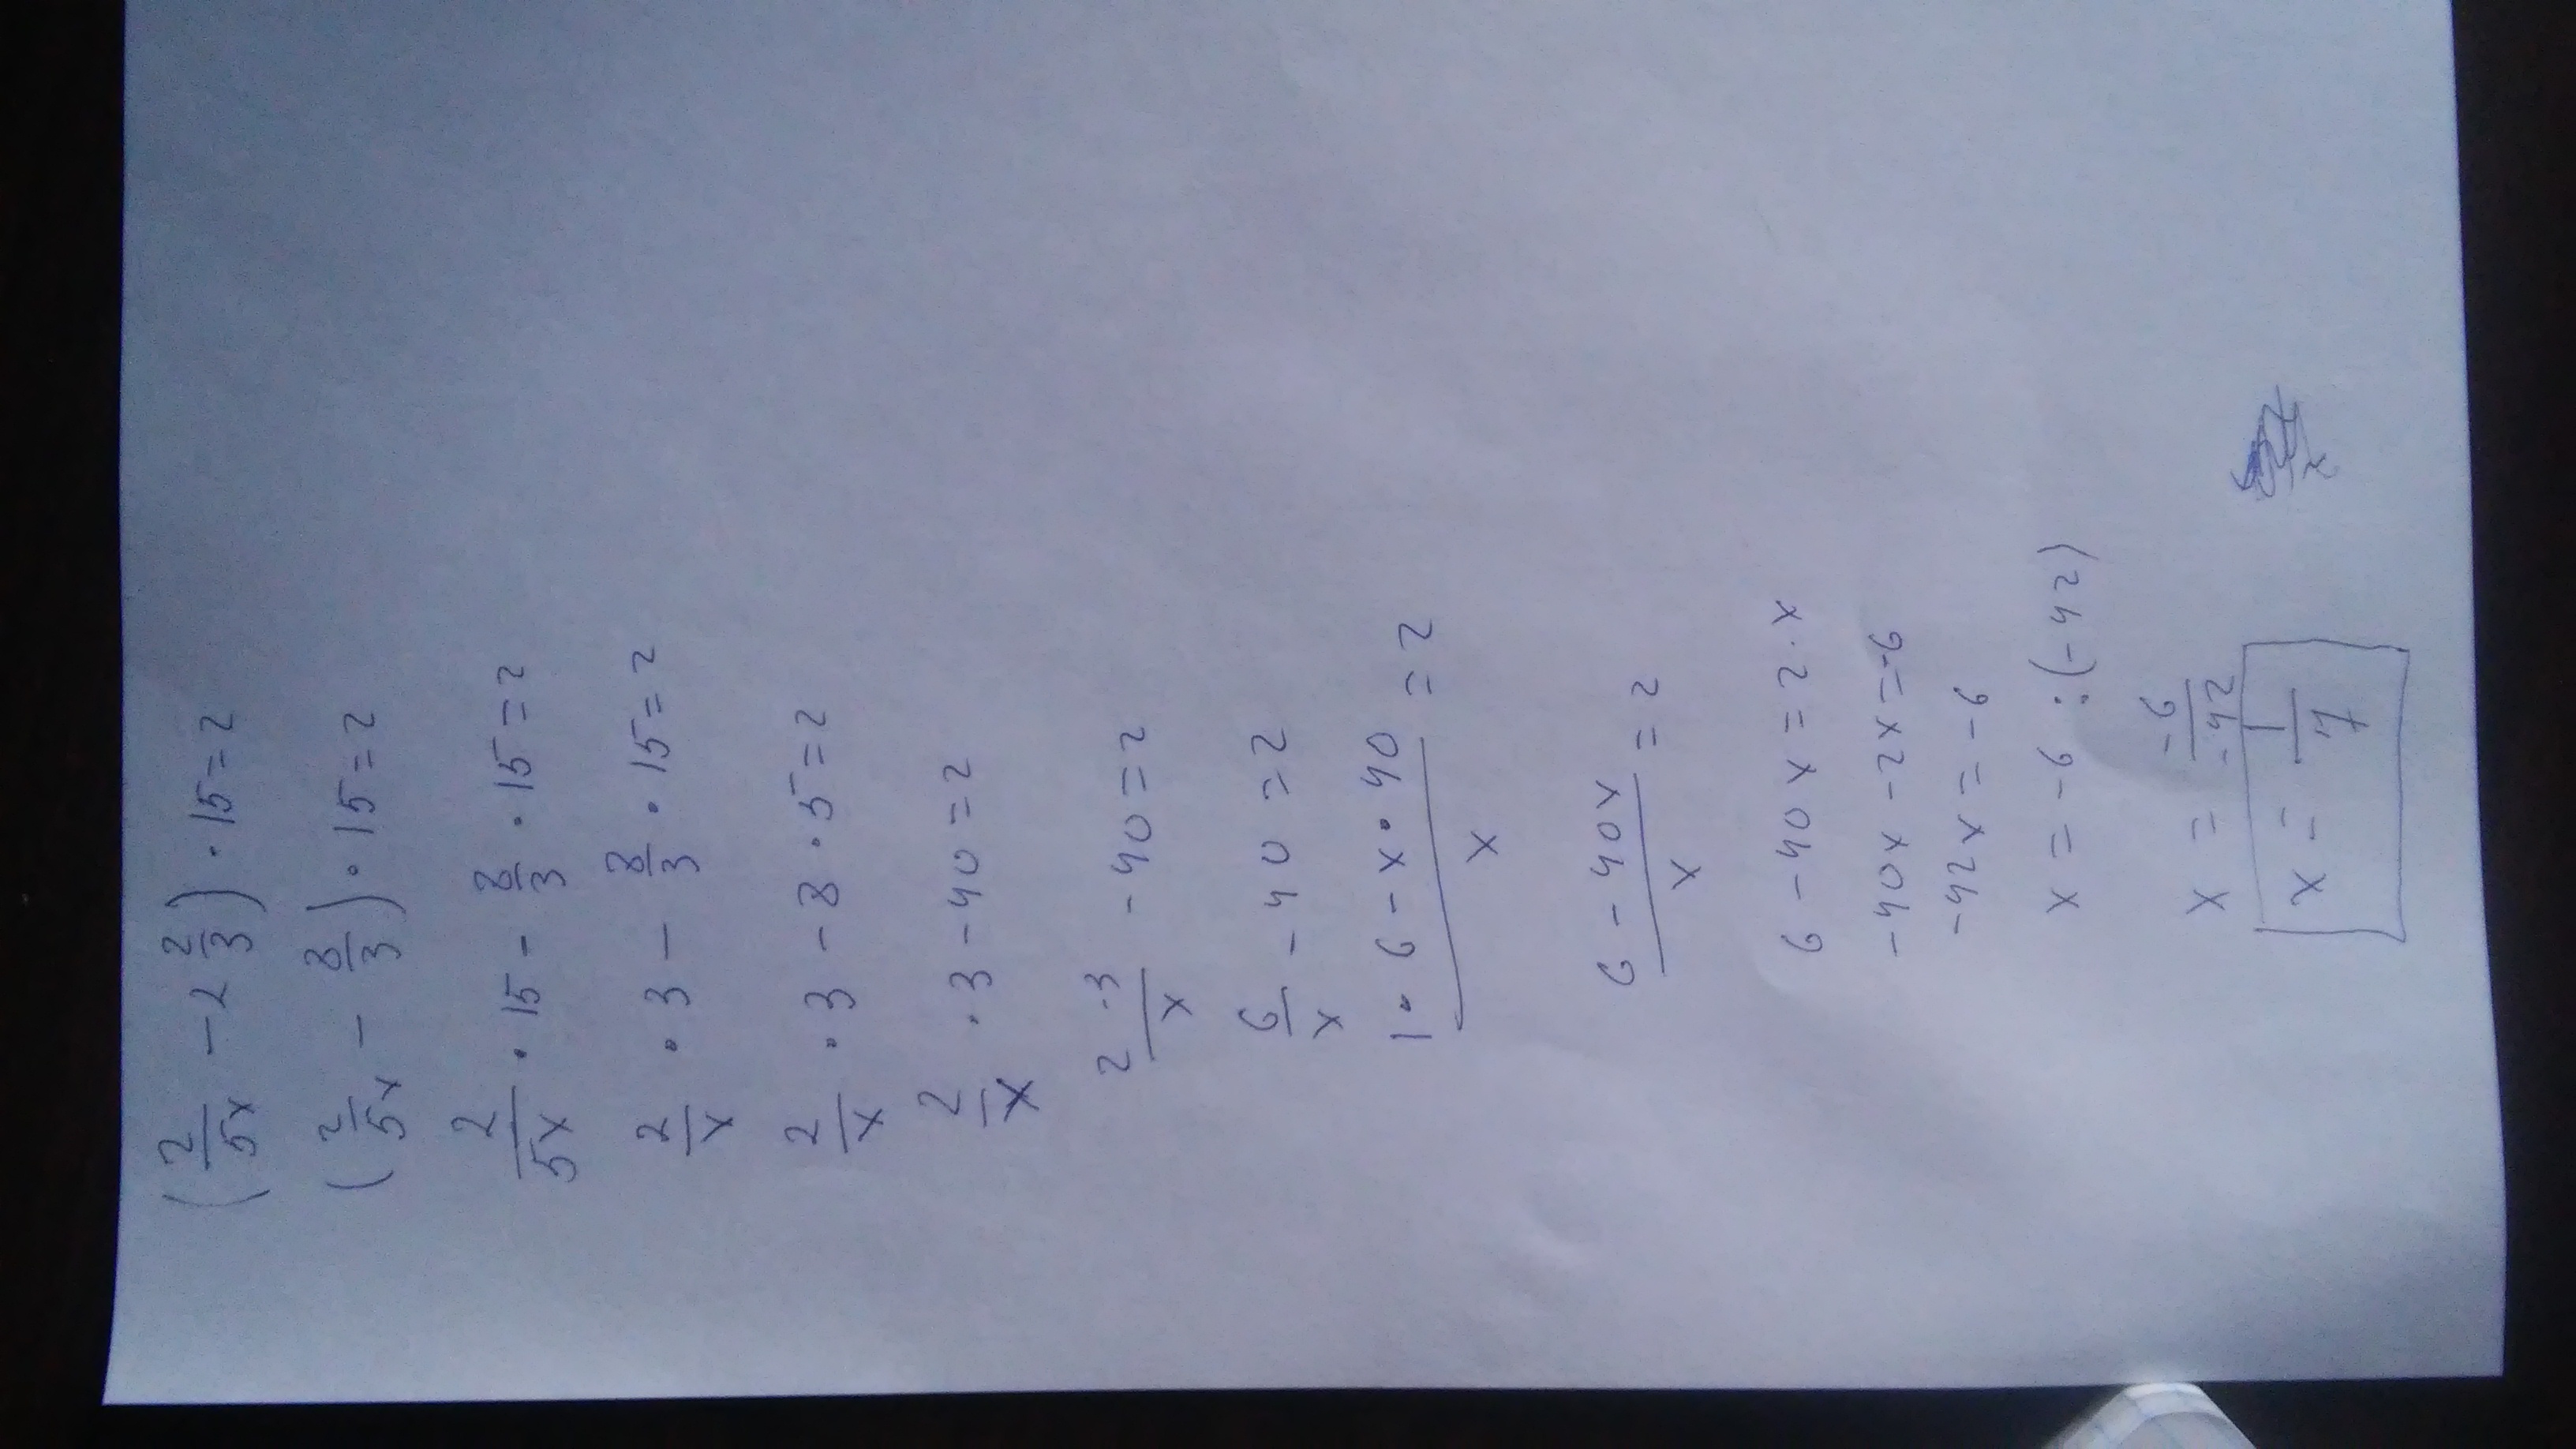 (2/5x - 2 2/3) · 15 = 2
(2/5x - 8/3) · 15 = 2
2/5x · 15 - 8/3 · 15 = 2
2/x · 3 - 8/3 · 15 = 2
2/x · 3 - 8 · 5 = 2
2/x · 3 - 40 = 2
2·3/x - 40 = 2
6/x - 40 = 2
1·6 - x·40/x = 2
6 - 40x/x = 2
6 - 40x = 2·x
-40x - 2x = -6
-42x = -6
x = -6 : (-42)
x = -6/-42
x = 1/7